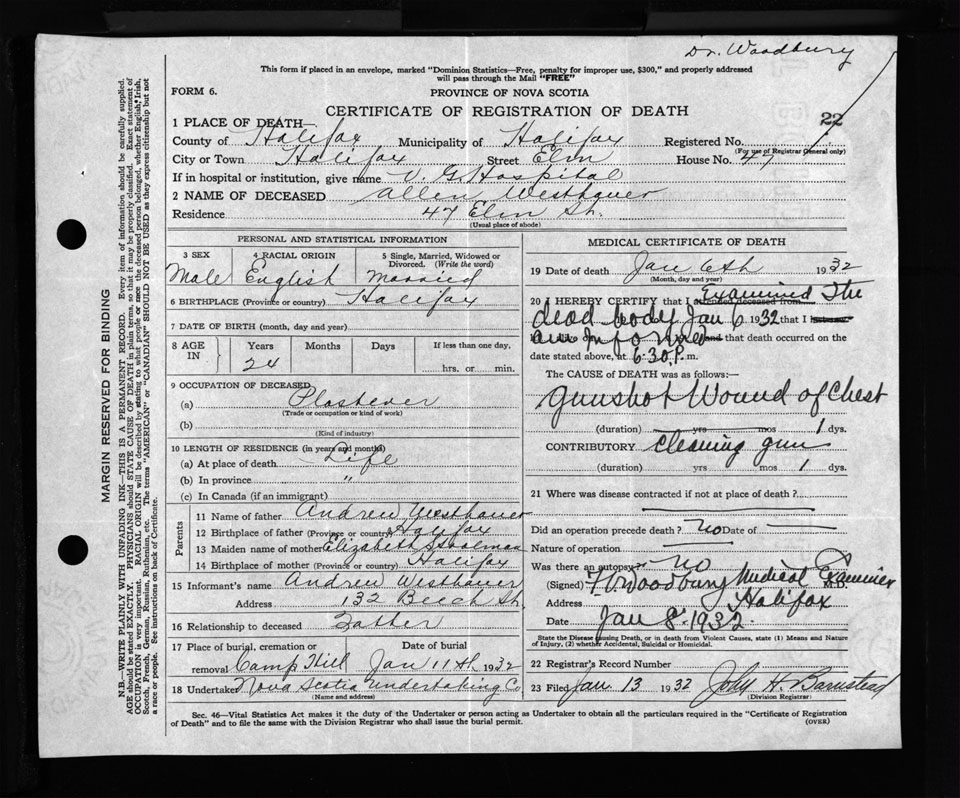 Dr. Woodbury
This form if placed in an envelope, marked "Dominion Statistics—Free, penalty for improper use, $300," and properly addressed
will pass through the Mail "FREE"
FORM 6.
PROVINCE OF NOVA SCOTIA
CERTIFICATE OF REGISTRATION OF DEATH
22
1 PLACE OF DEATH—
County of Halifax Municipality of Halifax Registered No.
(For use of Registrar General only)
City or Town Halifax Street Elm House No. 47
If in hospital or institution, give name V. G. Hospital
2 NAME OF DECEASED Allen Westhaver
Residence 47 Elm St.
(Usual place of abode)
PERSONAL AND STATISTICAL INFORMATION
3 SEX 4 RACIAL ORIGIN 5 Single, Married, Widowed or Divorced. (Write the word)
Male English Married
6 BIRTHPLACE (Province or country) Halifax
7 DATE OF BIRTH (month, day and year)
8 AGE IN Years Months Days If less than one day,
24 hrs. or min.
9 OCCUPATION OF DECEASED
(a) Plasterer
(Trade or occupation or kind of work)
(b)
(Kind of industry)
10 LENGTH OF RESIDENCE (in years and months)
(a) At place of death Life
(b) In province "
(c) In Canada (if an immigrant)
Parents
11 Name of father Andrew Westhaver
12 Birthplace of father (Province or country) Halifax
13 Maiden name of mother Elizabeth
14 Birthplace of mother (Province or country) Halifax
15 Informant's name Andrew Westhaver
Address 132 Beech St.
16 Relationship to deceased Father
17 Place of burial, cremation or removal Camp Hill Date of burial Jan 11th 1932
18 Undertaker Nova Scotia Undertaking Co
(Name and address)
MEDICAL CERTIFICATE OF DEATH
19 Date of death Jan 6th 1932
(Month, day and year)
20 I HEREBY CERTIFY that I attended deceased from Examined The
dead body Jan 6 1932 that I
am Informed and that death occurred on the
date stated above, at 6:30 P. m.
The CAUSE of DEATH was as follows:—
Gunshot Wound of Chest
(duration) yrs mos 1 dys.
CONTRIBUTORY cleaning gun
(duration) yrs mos 1 dys.
21 Where was disease contracted if not at place of death?
Did an operation precede death? no Date of
Nature of operation
Was there an autopsy? no
(Signed) Woodbury Medical Examiner M.D.
Address Halifax
Date Jan 8 - 1932
State the Disease causing Death, or in death from Violent Causes, state (1) Means and Nature
of Injury, (2) whether Accidental, Suicidal or Homicidal.
22 Registrar's Record Number
23 Filed Jan 13 1932 John H. Barnstead
(Division Registrar)
Sec. 46—Vital Statistics Act makes it the duty of the Undertaker or person acting as Undertaker to obtain all the particulars required in the "Certificate of Registration
of Death" and to file the same with the Division Registrar who shall issue the burial permit.
(OVER)
MARGIN RESERVED FOR BINDING
N.B.—WRITE PLAINLY WITH UNFADING INK—THIS IS A PERMANENT RECORD. Every item of information should be carefully supplied.
AGE should be stated EXACTLY. PHYSICIANS should STATE CAUSE OF DEATH in plain terms, so that it may be properly classified. Exact statement of
OCCUPATION is very important. RACIAL ORIGIN will be described by stating to what people or race the deceased person belonged, whether English, Irish,
Scotch, French, German, Russian, Ruthenian, etc. The terms "AMERICAN" or "CANADIAN" SHOULD NOT BE USED as they express citizenship but not
a race or people. See instructions on back of Certificate.